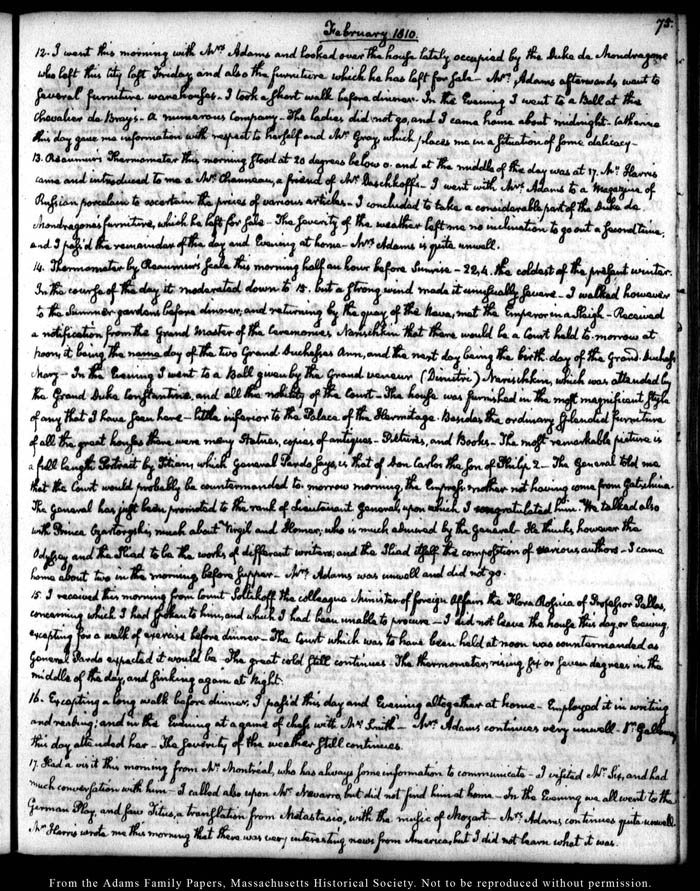 75.
February 1810.
12. I went this morning with Mrs. Adams and looked over the house lately occupied by the Duke de Mondragone
who left this city last Friday, and also the furniture which he has left for sale – Mrs. Adams afterwards went to
several furniture warehouses. I took a short walk before dinner. In the Evening I went to a Ball at the
Chevalier de Bray's. A numerous Company. The ladies did not go, and I came home about midnight. Catherine
this day gave me information with respect to herself and Mr. Gray, which places me in a situation of some delicacy –
13. Reaumur's Thermometer this morning stood at 20 degrees below 0. and at the middle of the day was at 17. Mr. Harris
came and introduced to me a Mr. a friend of Mr. Daschkoff's – I went with Mrs. Adams to a Magazine of
Russian porcelain to ascertain the prices of various articles – I concluded to take a considerable part of the Duke de
Mondragone's furniture, which he left for sale – The severity of the weather left me no inclination to go out a second time,
and I pass'd the remainder of the day and Evening at home – Mrs. Adams is quite unwell.
14. Thermometer by Reaumur's scale this morning half an hour before Sunrise – 22,4. the coldest of the present winter.
In the course of the day it moderated down to 15. but a strong wind made it unusually severe – I walked however
to the Summer gardens before dinner, and returning by the quay of the Neva, met the Emperor in a Sleigh – Received
a notification from the Grand Master of the Ceremonies, Narischkin that there would be a Court held to-morrow at
noon, it being the name day of the two Grand Duchesses Ann, and the next day being the birth day of the Grand Duchess
Mary – In the Evening I went to a Ball given by the Grand veneur (Dimitri) Narischkin, which was attended by
the Grand Duke Constantine, and all the nobility of the Court – The house was furnished in the most magnificent style
of any that I have seen here – little inferior to the Palace of the Hermitage. Besides the ordinary splendid furniture
of all the great houses there were many Statues, copies of antiques – Pictures, and Books – The most remarkable picture is
a full length Portrait by Titian, which General Pardo says, is that of Don Carlos the son of Philip 2 – The General told me
that the Court would probably be countermanded to-morrow morning, the Empress-mother not having come from Gatschina.
The General has just been promoted to the rank of Lieutenant General, upon which I congratulated him. We talked also
with Prince Czartorysky, much about Virgil and Homer, who is much admired by the General – He thinks however the
Odyssey and the Iliad to be the works of different writers, and the Iliad itself the composition of various authors – I came
home about two in the morning before supper – Mrs. Adams was unwell and did not go.
15. I received this morning from Count Soltykoff the colleague Minister of foreign Affairs the Flora Rossica of Professor Pallas,
concerning which I had spoken to him, and which I had been unable to procure – I did not leave the house this day, or Evening,
excepting for a walk of exercise before dinner – The Court which was to have been held at noon was countermanded as
General Pardo expected it would be – The great cold still continues – The thermometer, rising six or seven degrees in the
middle of the day, and sinking again at Night.
16. Excepting a long walk before dinner, I pass'd this day and Evening altogether at home – Employed it in writing
and reading; and in the Evening at a game of chess with Mr. Smith – Mrs. Adams continues very unwell – Dr. Galloway
this day attended her – The severity of the weather still continues.
17. Had a visit this morning from Mr. Montréal, who has always some information to communicate – I visited Mr. Six, and had
much conversation with him – I called also upon Mr. Navarro, but did not find him at home – In the Evening we all went to the
German Play, and saw Titus, a translation from Metastasio, with the music of Mozart – Mrs. Adams, continues quite unwell.
Mr. Harris wrote me this morning that there was very interesting news from America, but I did not learn what it was.
From the Adams Family Papers, Massachusetts Historical Society. Not to be reproduced without permission.